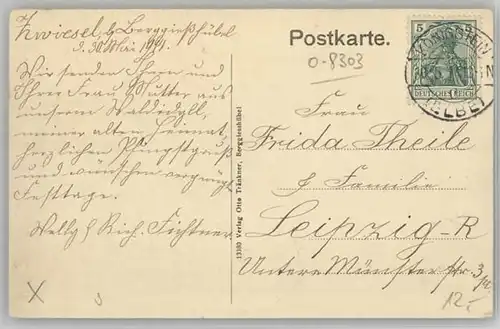 Zwiesel, b/ Berggießhübel
d. 30. Mai 1911.
Wir senden Ihnen und
Ihrer Frau Mutter aus
unserm Waldidyll,
meiner alten Heimat,
herzlichen Pfingstgruß
und wünschen vergnügte
Festtage.
Welly & Rich. Fichtner
13380 Verlag Otto Tränkner, Berggiesshübel
Postkarte.
O-8303
5
DEUTSCHES REICH
KÖNIGSTEIN
(ELBE)
Frau
Frida Theile
& Familie
Leipzig-R
Untere Münsterstr. 3
12,-